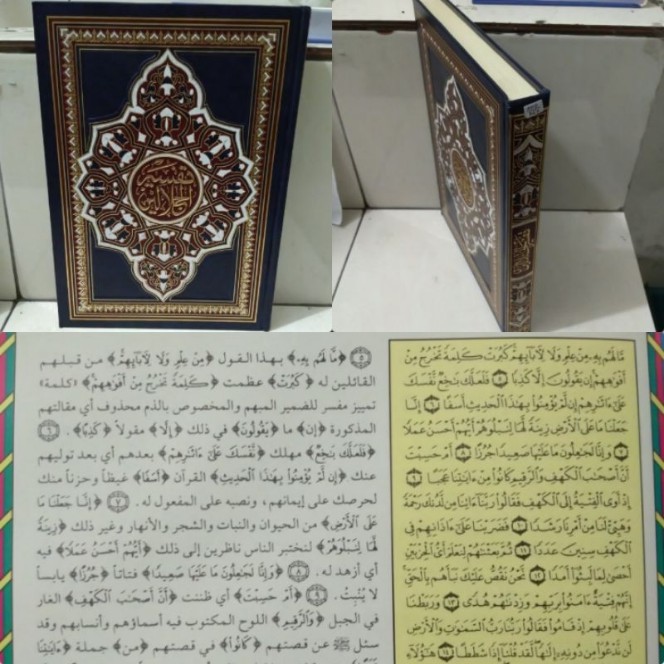 تفسير
الجلالين
﴿٥﴾ ﴿مَّا لَهُم بِهِۦ﴾ بهذا القول ﴿مِنْ عِلْمٍ وَلَا لِأٓبَآئِهِمْ﴾ من قبلهم
القائلين له ﴿كَبُرَتْ﴾ عظمت ﴿كَلِمَةً تَخْرُجُ مِنْ أَفْوَٰهِهِمْ﴾ «كلمة»
تمييز مفسر للضمير المبهم والمخصوص بالذم محذوف أي مقالتهم
المذكورة ﴿إِن﴾ ما ﴿يَقُولُونَ﴾ في ذلك ﴿إِلَّا﴾ مقولاً ﴿كَذِبًا﴾. ﴿٦﴾
﴿فَلَعَلَّكَ بَٰخِعٌ﴾ مهلك ﴿نَّفْسَكَ عَلَىٰٓ ءَاثَٰرِهِمْ﴾ بعدهم أي بعد توليهم
عنك ﴿إِن لَّمْ يُؤْمِنُوا۟ بِهَٰذَا ٱلْحَدِيثِ﴾ القرآن ﴿أَسَفًا﴾ غيظاً وحزناً منك
لحرصك على إيمانهم، ونصبه على المفعول له. ﴿٧﴾ ﴿إِنَّا جَعَلْنَا مَا
عَلَى ٱلْأَرْضِ﴾ من الحيوان والنبات والشجر والأنهار وغير ذلك ﴿زِينَةً
لَّهَا لِنَبْلُوَهُمْ﴾ لنختبر الناس ناظرين إلى ذلك ﴿أَيُّهُمْ أَحْسَنُ عَمَلًا﴾ فيه
أي أزهد له. ﴿٨﴾ ﴿وَإِنَّا لَجَٰعِلُونَ مَا عَلَيْهَا صَعِيدًا﴾ فتاتاً ﴿جُرُزًا﴾ يابساً
لا يُنبِت. ﴿٩﴾ ﴿أَمْ حَسِبْتَ﴾ أي ظننت ﴿أَنَّ أَصْحَٰبَ ٱلْكَهْفِ﴾ الغار
في الجبل ﴿وَٱلرَّقِيمِ﴾ اللوح المكتوب فيه أسماؤهم وأنسابهم وقد
سئل ﷺ عن قصتهم ﴿كَانُوا۟﴾ في قصتهم ﴿مِنْ﴾ جملة ﴿ءَايَٰتِنَا
مَّا لَهُم بِهِۦ مِنْ عِلْمٍ وَلَا لِأٓبَآئِهِمْ كَبُرَتْ كَلِمَةً تَخْرُجُ مِنْ
أَفْوَٰهِهِمْ إِن يَقُولُونَ إِلَّا كَذِبًا ﴿٥﴾ فَلَعَلَّكَ بَٰخِعٌ نَّفْسَكَ
عَلَىٰٓ ءَاثَٰرِهِمْ إِن لَّمْ يُؤْمِنُوا۟ بِهَٰذَا ٱلْحَدِيثِ أَسَفًا ﴿٦﴾ إِنَّا
جَعَلْنَا مَا عَلَى ٱلْأَرْضِ زِينَةً لَّهَا لِنَبْلُوَهُمْ أَيُّهُمْ أَحْسَنُ عَمَلًا
﴿٧﴾ وَإِنَّا لَجَٰعِلُونَ مَا عَلَيْهَا صَعِيدًا جُرُزًا ﴿٨﴾ أَمْ حَسِبْتَ
أَنَّ أَصْحَٰبَ ٱلْكَهْفِ وَٱلرَّقِيمِ كَانُوا۟ مِنْ ءَايَٰتِنَا عَجَبًا ﴿٩﴾
إِذْ أَوَى ٱلْفِتْيَةُ إِلَى ٱلْكَهْفِ فَقَالُوا۟ رَبَّنَآ ءَاتِنَا مِن لَّدُنكَ رَحْمَةً
وَهَيِّئْ لَنَا مِنْ أَمْرِنَا رَشَدًا ﴿١٠﴾ فَضَرَبْنَا عَلَىٰٓ ءَاذَانِهِمْ فِى
ٱلْكَهْفِ سِنِينَ عَدَدًا ﴿١١﴾ ثُمَّ بَعَثْنَٰهُمْ لِنَعْلَمَ أَىُّ ٱلْحِزْبَيْنِ
أَحْصَىٰ لِمَا لَبِثُوٓا۟ أَمَدًا ﴿١٢﴾ نَّحْنُ نَقُصُّ عَلَيْكَ نَبَأَهُم بِٱلْحَقِّ
إِنَّهُمْ فِتْيَةٌ ءَامَنُوا۟ بِرَبِّهِمْ وَزِدْنَٰهُمْ هُدًى ﴿١٣﴾ وَرَبَطْنَا
عَلَىٰ قُلُوبِهِمْ إِذْ قَامُوا۟ فَقَالُوا۟ رَبُّنَا رَبُّ ٱلسَّمَٰوَٰتِ وَٱلْأَرْضِ
لَن نَّدْعُوَا۟ مِن دُونِهِۦٓ إِلَٰهًا لَّقَدْ قُلْنَآ إِذًا شَطَطًا ﴿١٤﴾ هَٰٓؤُلَآءِ